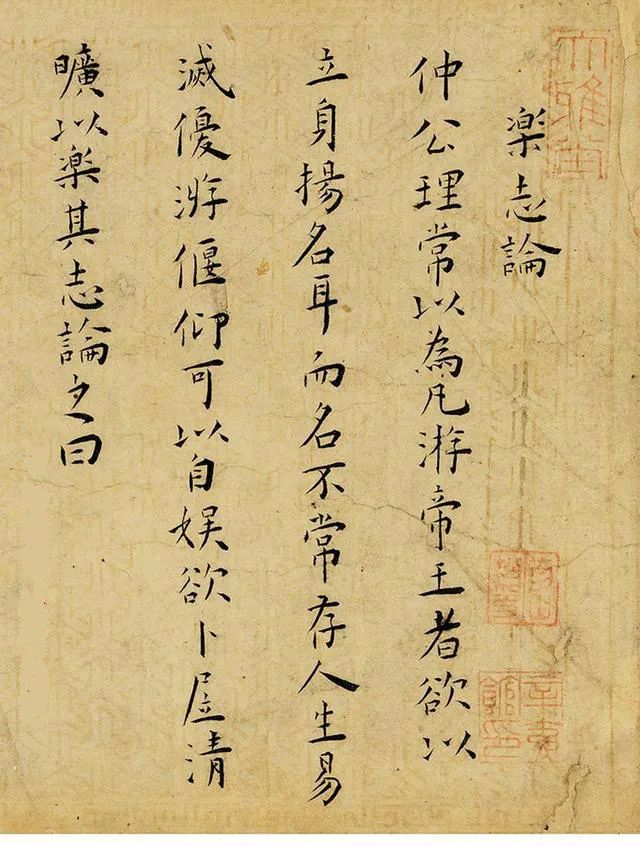 楽志論
仲公理常以為凡游帝王者欲以
立身揚名耳而名不常存人生易
滅優游偃仰可以自娯欲卜居清
曠以楽其志論之曰